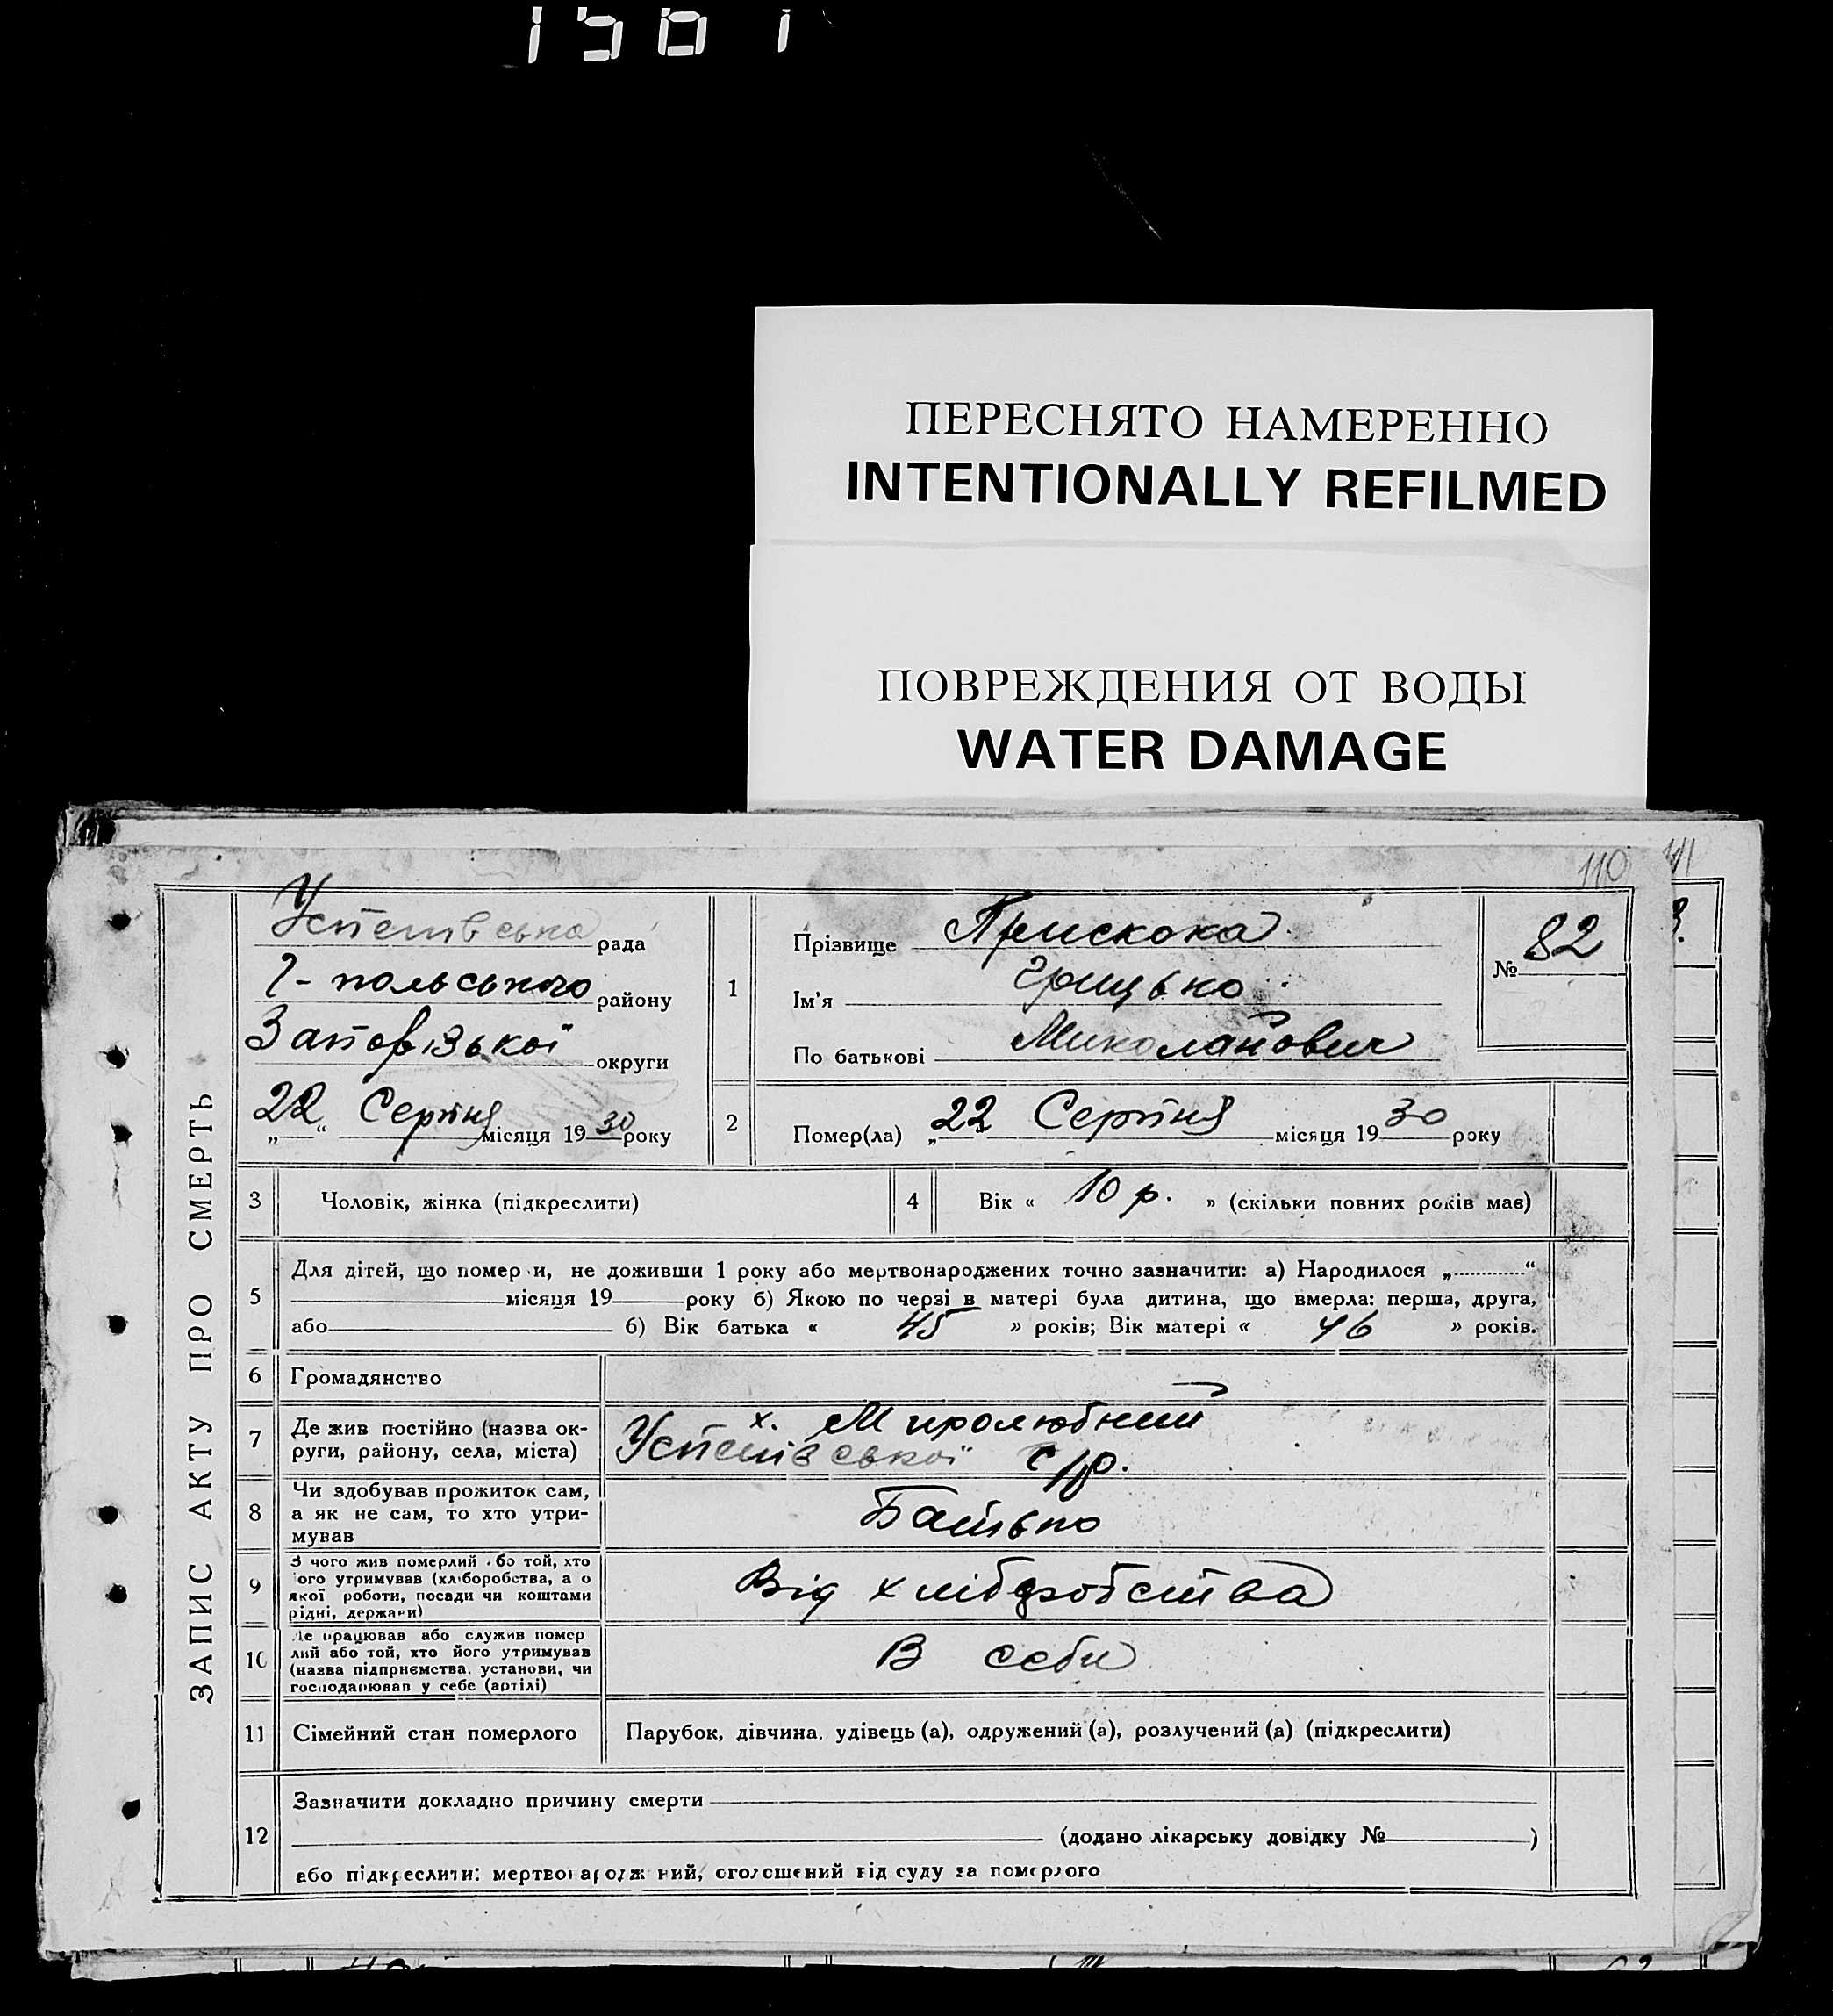 1561
ПЕРЕСНЯТО НАМЕРЕННО
INTENTIONALLY REFILMED
ПОВРЕЖДЕНИЯ ОТ ВОДЫ
WATER DAMAGE
110
ЗАПИС АКТУ ПРО СМЕРТЬ
Успенівська рада
Г-польського району
Запорізької округи
„22“ Серпня місяця 1930 року
1
Прізвище Прискока
Ім'я Грицько
По батькові Миколайович
№ 82
2
Помер(ла) „22 Серпня місяця 1930 року
3 Чоловік, жінка (підкреслити)
4 Вік « 10 р. » (скільки повних років має)
5
Для дітей, що померли, не доживши 1 року або мертвонароджених точно зазначити: а) Народилося „ “
місяця 19 року б) Якою по черзі в матері була дитина, що вмерла: перша, друга,
або б) Вік батька « 45 » років; Вік матері « 46 » років.
6 Громадянство
7 Де жив постійно (назва ок-
руги, району, села, міста)
х. Миролюбний
Успенівської с/р.
8 Чи здобував прожиток сам,
а як не сам, то хто утри-
мував
Батько
9 З чого жив померлий або той, хто
його утримував (хліборобства, а о
якої роботи, посади чи коштами
рідні, держави)
Від хліборобства
10 Де працював або служив помер
лий або той, хто його утримував
(назва підприємства, установи, чи
господарював у себе (артілі)
В себи
11 Сімейний стан померлого Парубок, дівчина, удівець (а), одружений (а), розлучений (а) (підкреслити)
12
Зазначити докладно причину смерти
(додано лікарську довідку № )
або підкреслити: мертвонароджений, оголошений від суду за померлого